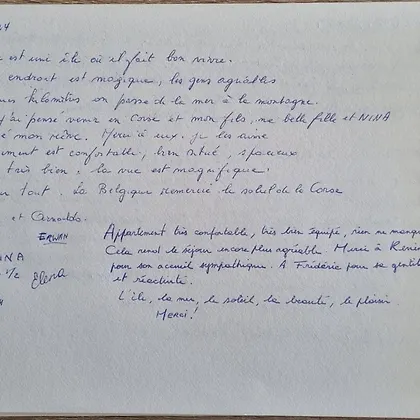 24
est une île où il fait bon vivre.
endroit est magique, les gens agréables
kilomètres on passe de la mer à la montagne.
j'ai pensé venir en Corse et mon fils, ma belle fille et NINA
mon rêve. Merci à eux. je les aime
est confortable, bien situé, spacieux
très bien. la vue est magnifique!
tout. La Belgique remercie le soleil de la Corse
et Arnoldo.
ERWAN
NINA
1/2 Elena
Appartement très confortable, très bien équipé, rien ne manque
Cela rend le séjour encore plus agréable. Merci à René
pour son accueil sympathique. A Frédéric pour sa gentil
et réactivité.
L'île, la mer, le soleil, la beauté, le plaisir.
Merci!